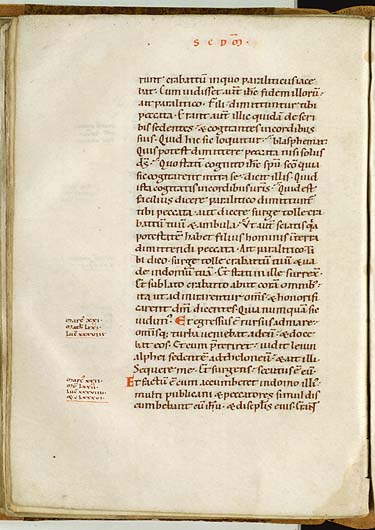 S C D O M
runt crabattū inquo paraliticus iace
bat. Cum uidisset aut̄ ihc̄ fidem illorū
ait paralitico. Fili dimittuntur tibi
peccata. Erant aut̄ illic quidā de scri
bis sedentes. & cogitantes incordibus
suis. Quid hic sic loquitur. blasphemat.
Quis potest dimittere peccata nisi solus
ds̄. Quo statī cognito ihc̄ spū scō quia
sic cogitarent intra se. dicit illis. Quid
ista cogitatis incordibus uris̄. Quid est
facilius dicere paralitico dimittunt̄
tibi peccata. aut dicere surge tolle cra
battū tuū & ambula. Vt aut̄ sciatis qā
potestatē habet filius hominis īterra
dimittendi peccata. Ait paralitico. Ti
bi dico. surge tolle crabattū tuū & ua
de indomū tuā. Et statī ille surrex̄.
& sublato crabatto abiit corā omnib;
ita ut admirarentur om̄s & honorifi
carent dm̄ dicentes. Quia numquā sic
uidim;. Et egressus ē rursus admare.
omnisq; turba ueniebat adeū. & doce
bat eos. Et cum p̄teriret. uidit leuin
alphei sedentē adtheloneū. & ait illi.
Sequere me. Et surgens. secutus ē eū.
Et factū ē cum accumberet indomo illi;
multi publicani & peccatores simul dis
cumbebant cū ihū. & discipl̄is eius.